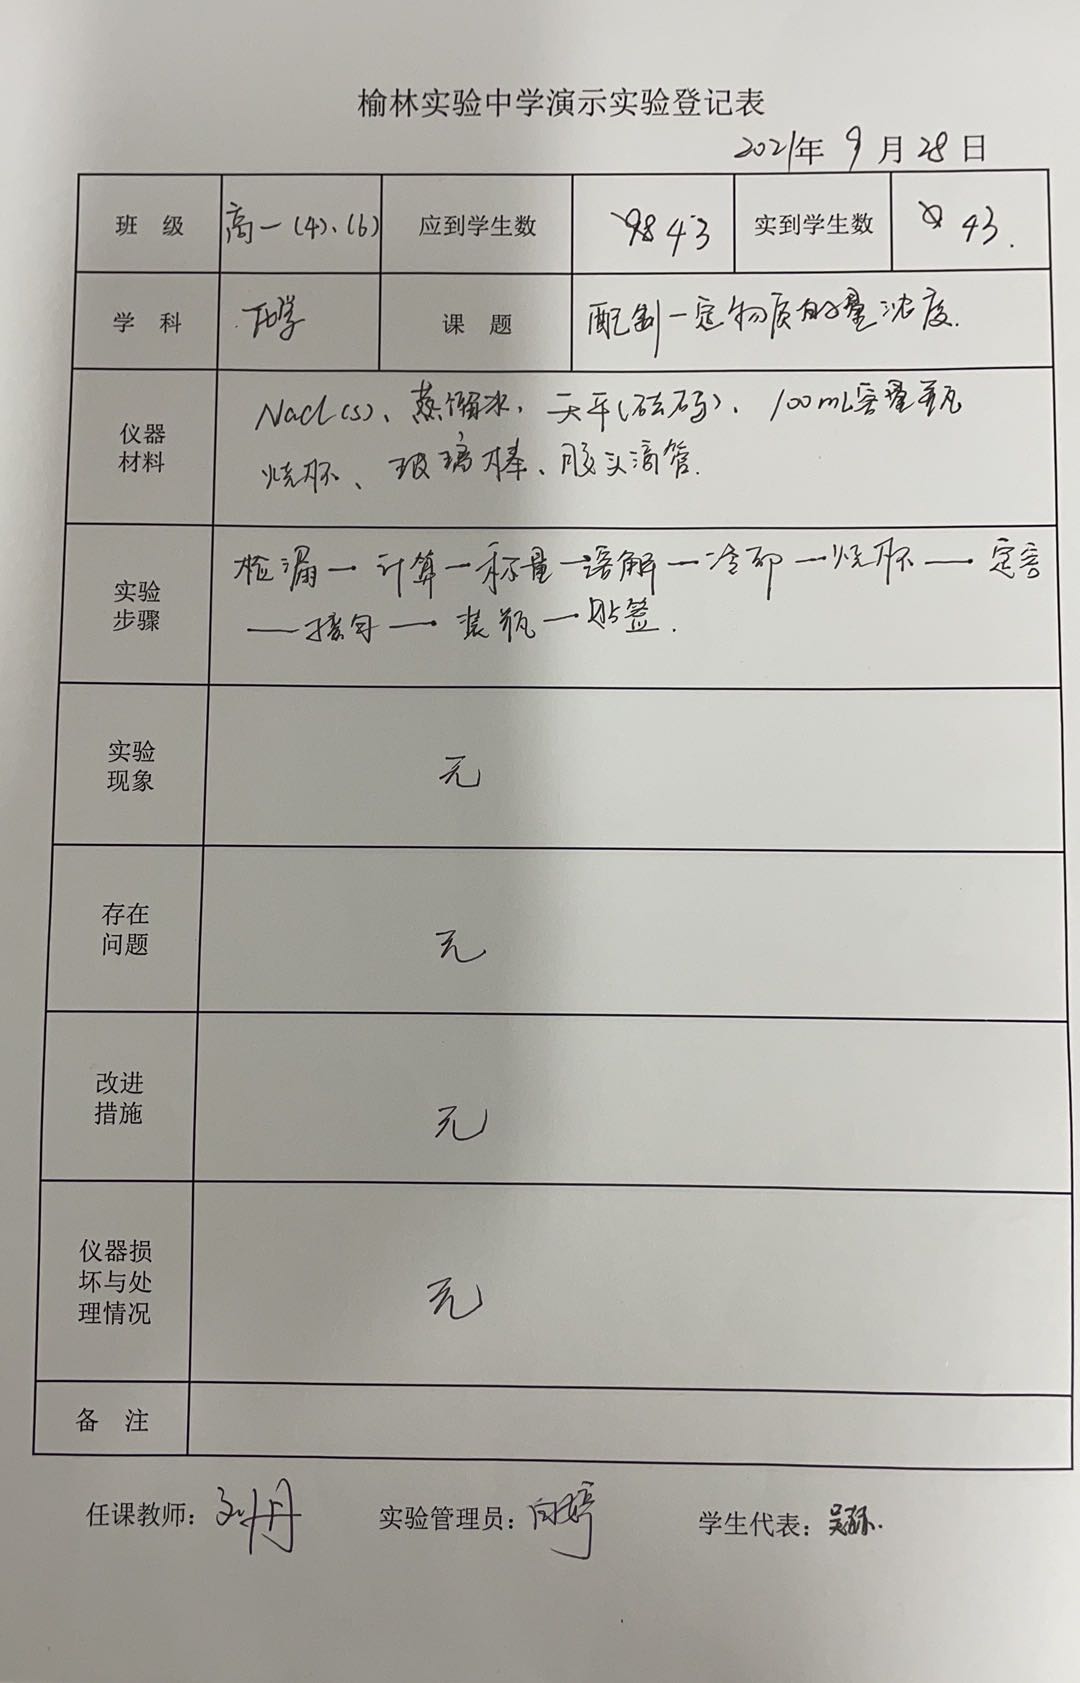 榆林实验中学演示实验登记表
2021年 9 月 28 日
班 级 高一(4)、(6) 应到学生数 43 实到学生数 43.
学 科 化学 课 题 配制一定物质的量浓度.
仪器材料 NaCl(s)、蒸馏水、天平(砝码)、100mL容量瓶
烧杯、玻璃棒、胶头滴管.
实验步骤 检漏—计算—称量—溶解—冷却—烧杯—定容
—摇匀—装瓶—贴签.
实验现象 无
存在问题 无
改进措施 无
仪器损坏与处理情况 无
备 注
任课教师：刘丹 实验管理员： 学生代表：